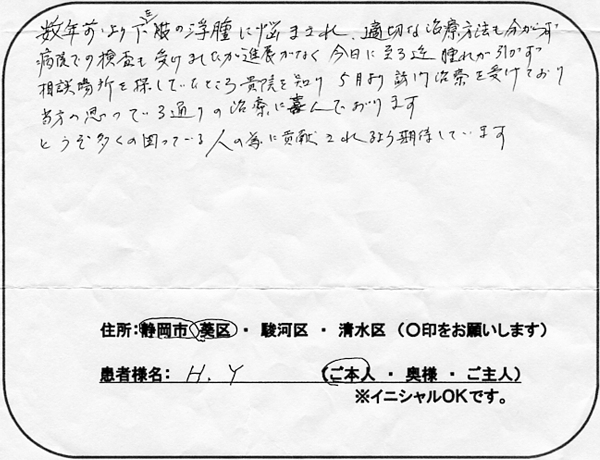 数年前より下肢の浮腫に悩まされ、適切な治療方法も分からず
病院での検査も受けましたが進展がなく今日に至る迄腫れが引かず
相談場所を探していたところ貴院を知り5月より訪問治療を受けており
当方の思っている通りの治療に喜んでおります
どうぞ多くの困っている人の為に貢献されるよう期待しています
住所:静岡市 葵区 ・ 駿河区 ・ 清水区 (〇印をお願いします)
患者様名: H. Y (ご本人 ・ 奥様 ・ ご主人)
※イニシャルOKです。